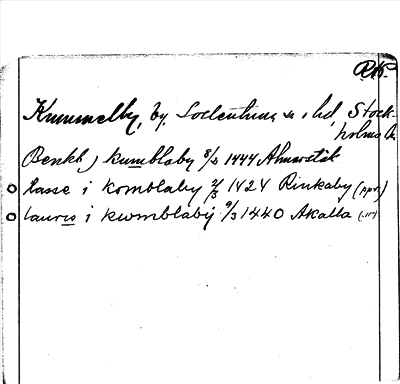 Kummelby, by, Sollentuna sn o hd, Stock-
holms
Benkt j kumblaby 8/2 1444 Almaretk
lasse i komblaby 2/3 1424 Rinkaby (ppr)
lauris i kwmblaby 9/3 1440 Akalla